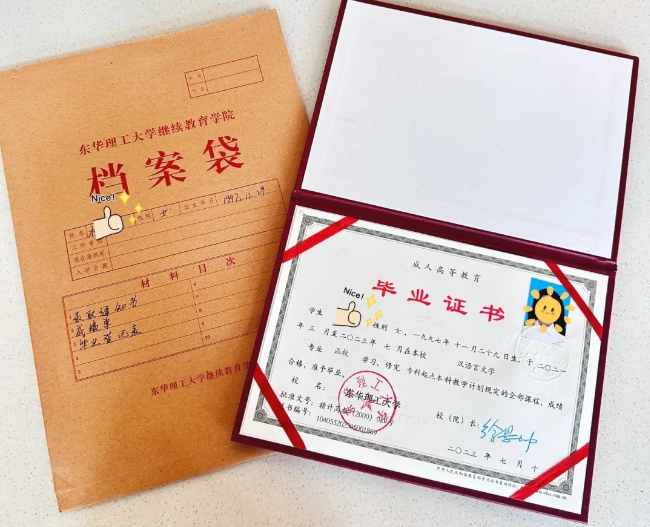 东华理工大学继续教育学院
档案袋
Nice!
姓名 性别 女 出生年月 1997.11.29
工作单位
入学日期
材料目次
1 录取通知书 6
2 成绩单 7
3 毕业登记表 8
4 9
5 10
东华理工大学继续教育
成人高等教育
毕业证书
Nice!
学生 性别 女,一九九七年 十一月二十九日生,于二〇二一
年 三 月至二〇二三年 七 月在本校 汉语言文学
专业 函授 学习,修完 专科起点本科教学计划规定的全部课程,成绩
合格,准予毕业。
校 名: 东华理工大学 校(院)长:
批准文号:
证书编号:
二〇二三年 七月 十